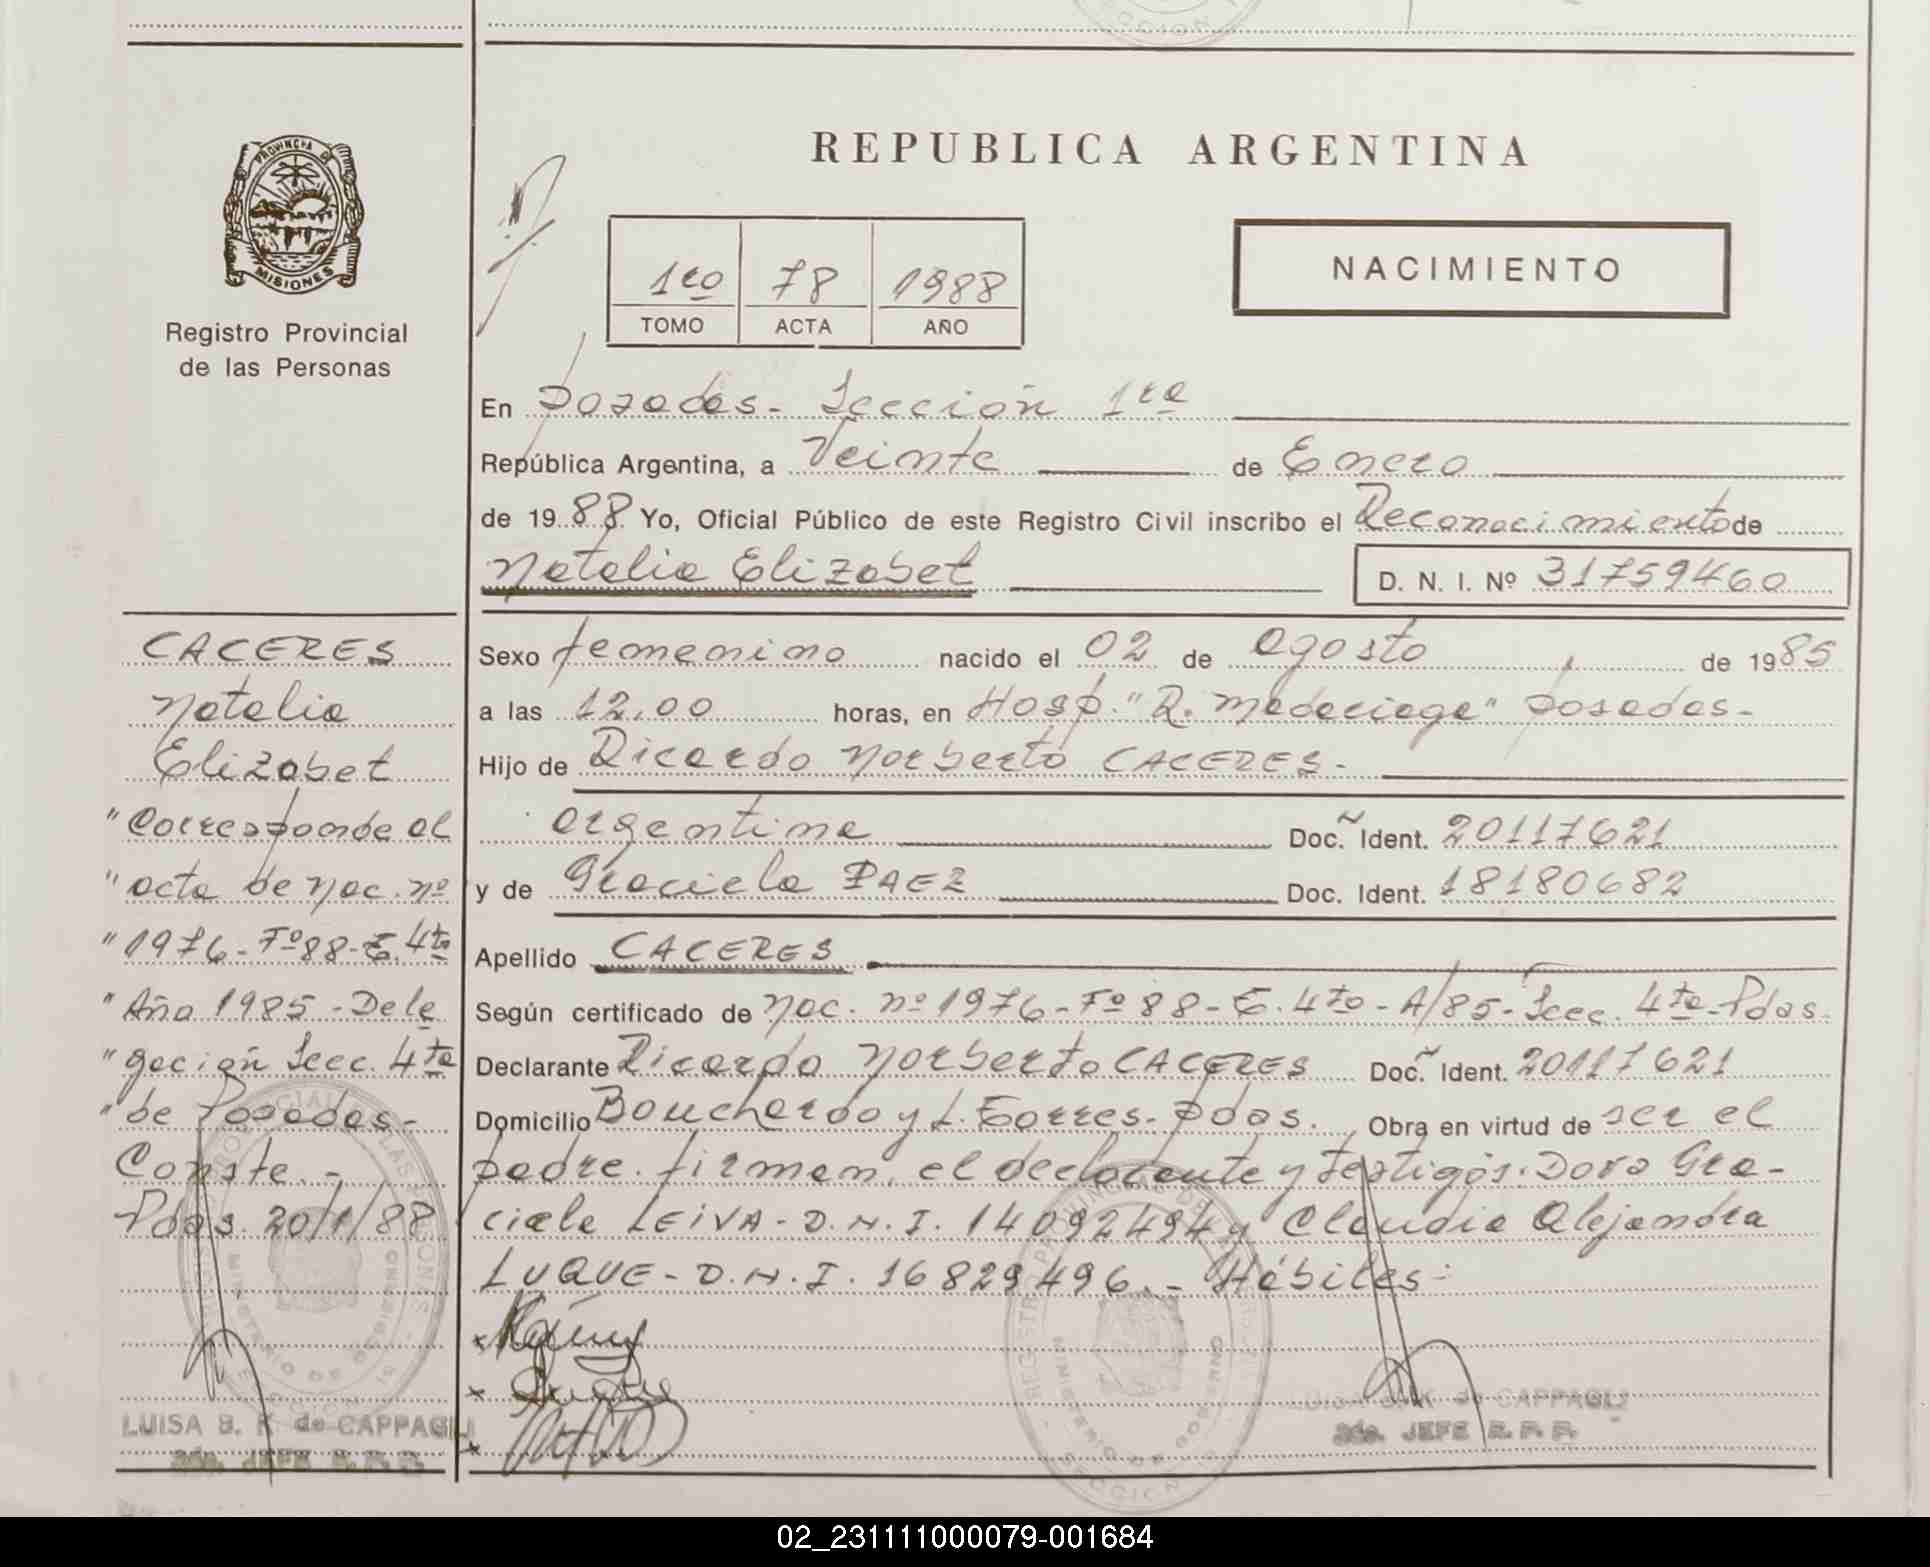 PROVINCIA DE
MISIONES
Registro Provincial
de las Personas
REPUBLICA ARGENTINA
1ro 78 1988
TOMO ACTA AÑO
NACIMIENTO
En Posadas - Sección 1ra
República Argentina, a Veinte de Enero
de 1988 Yo, Oficial Público de este Registro Civil inscribo el Reconocimiento de
Natalia Elizabet D. N. I. Nº 31759460
Sexo femenino nacido el 02 de Agosto de 1985
a las 12,00 horas, en Hosp. "R. Madariaga" Posadas-
Hijo de Ricardo Norberto CACERES.-
argentina Doc. Ident. 20117621
y de Graciela PAEZ Doc. Ident. 18180682
Apellido CACERES
Según certificado de Nac. nº 1976-Fº 88-E. 4to - A/85-Secc. 4ta-Pdas.
Declarante Ricardo Norberto CACERES Doc. Ident. 20117621
Domicilio Bouchardo y L. Torres-Pdas. Obra en virtud de ser el
padre. firman, el declarante y testigos: Dora Gra-
ciela LEIVA - D.N.I. 14092494 y Claudia Alejandra
LUQUE - D.N.I. 16829496.- Hábiles-
CACERES
Natalia
Elizabet
"Corresponde al
"acta de Nac. nº
"1976-Fº88-E.4to
"Año 1985 - Dele
"gación Secc. 4ta
"de Posadas-
Conste.-
Pdas. 20/1/88
LUISA B. K de CAPPAGLI
2da. JEFE R.P.P.
LUISA B. K de CAPPAGLI
2da. JEFE R.P.P.
02_231111000079-001684